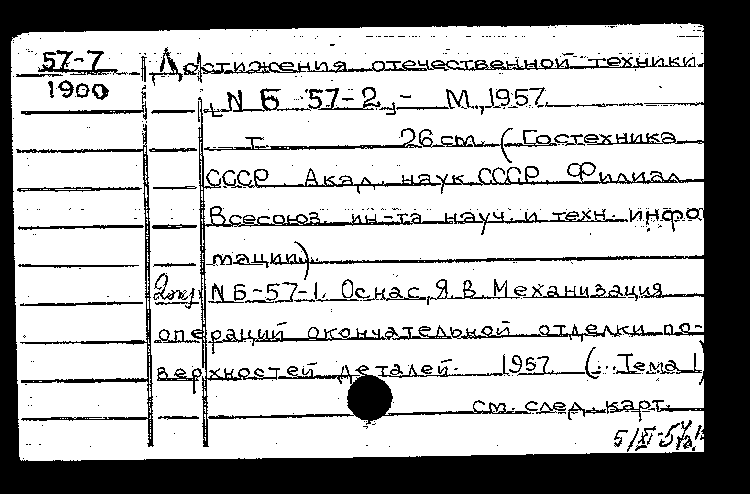 57-7 Достижения отечественной техники.
1900 N Б 57-2 - М., 1957.
т. 26 см. (Гостехника
СССР. Акад. наук СССР. Филиал
Всесоюз. ин-та науч. и техн. инфо
мации).
2 экз. N Б-57-1. Оснас, Я. В. Механизация
операций окончательной отделки по-
верхностей деталей. 1957. (... Тема 1)
см. след. карт.
5/XI-57г.